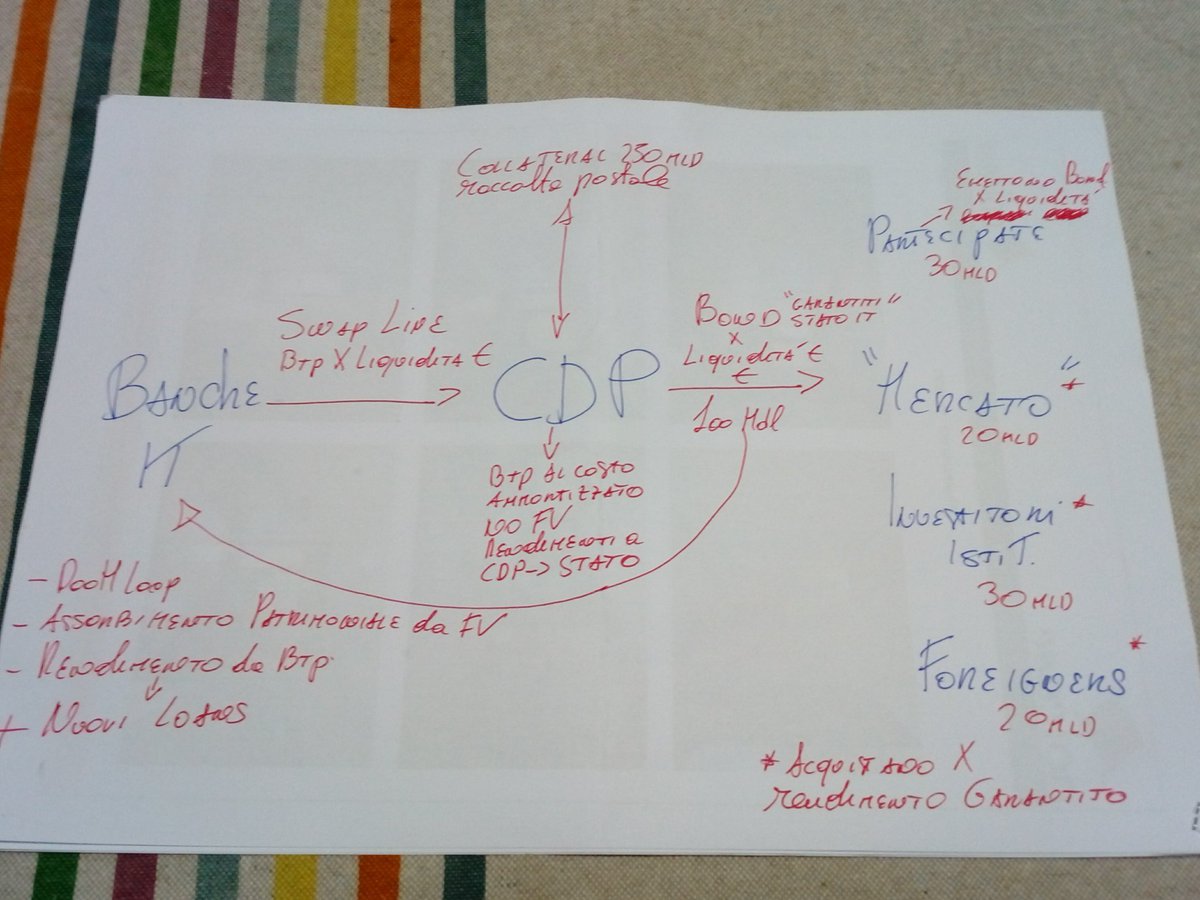 COLLATERAL 250 MLD
raccolta postale
EMETTONO Bond
X Liquidità
PARTECIPATE
30 MLD
SWAP LINE
BTP X Liquidità €
BANCHE
IT
CDP
BOND "GARANTITI"
STATO IT
X
Liquidità €
€
100 Mdl
"MERCATO" *
20 MLD
BTP AL COSTO
AMMORTIZZATO
NO FV
RENDIMENTI a
CDP -> STATO
INVESTITORI *
ISTIT.
30 MLD
- DOOM loop
- ASSORBIMENTO PATRIMONIALE da FV
- RENDIMENTO da BTP
+ NUOVI LOANS
FOREIGNERS *
20 MLD
* ACQUISTANO X
rendimento GARANTITO